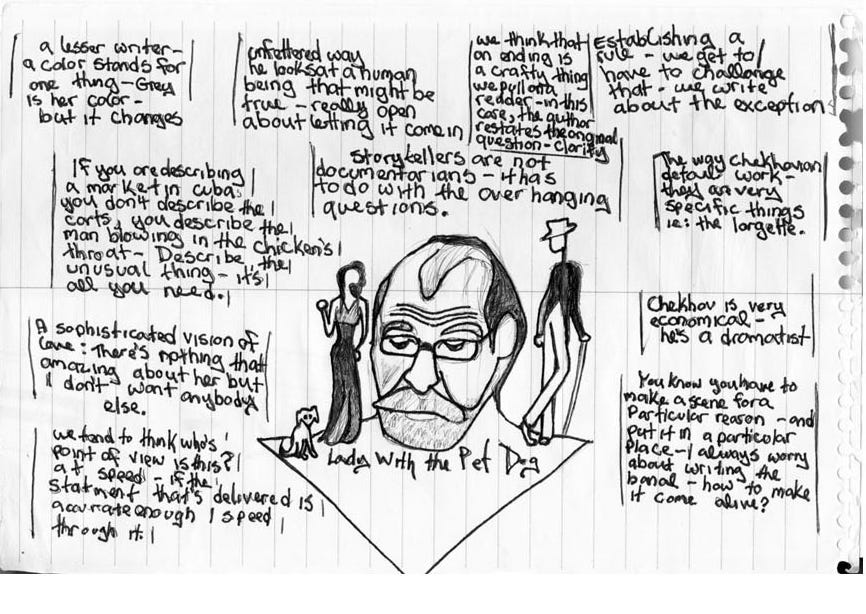 a lesser writer-
a color stands for
one thing-Grey
is her color-
but it changes
unfettered way
he looks at a human
being that might be
true - really open
about letting it come in
we think that
an ending is
a crafty thing
we pull on a
reader-in this
case, the author
restates the original
question-clarity
Establishing a
rule - we get to/
have to challenge
that - we write
about the exception
If you are describing
a market in cuba
you don't describe the
carts, you describe the
man blowing in the chicken's
throat - Describe the
unusual thing - it's
all you need.
storytellers are not
documentarians - it has
to do with the over hanging
questions.
The way Chekhovian
details work-
they are very
specific things
ie: the lorgette.
A sophisticated vision of
Love: There's nothing that
amazing about her but
I don't want anybody
else.
Chekhov is very
economical-
he's a dramatist
we tend to think who's
point of view is this?
at speed - if the
statment that's delivered is
accurate enough I speed
through it.
Lady With the Pet Dog
You know you have to
make a scene for a
particular reason - and
put it in a particular
place - I always worry
about writing the
banal - how to make
it come alive?